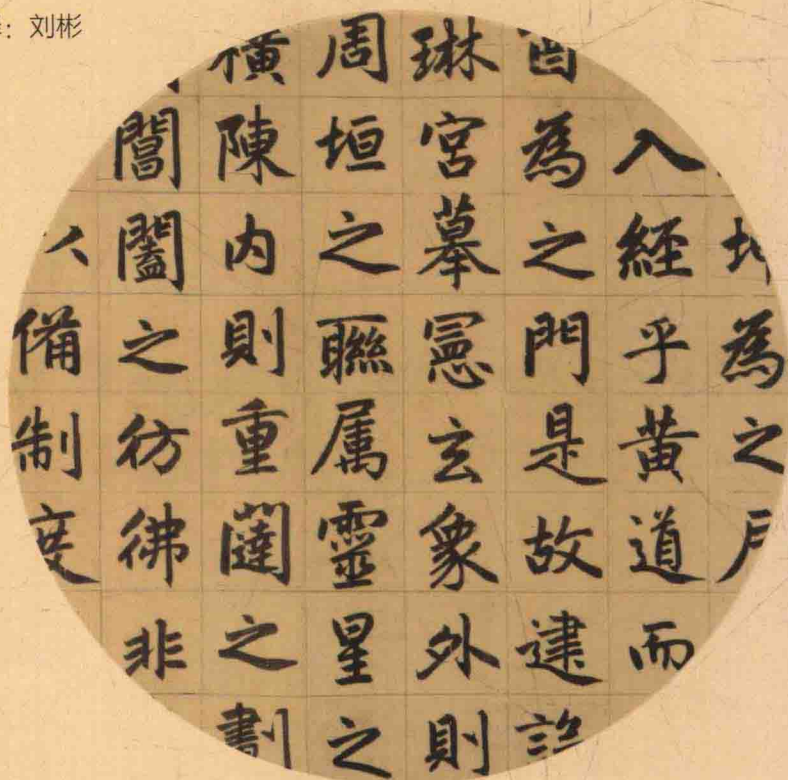 ：刘彬
坤為之戶
入經乎黄道而
酉為之門是故建設
琳宮摹憲玄象外則
周垣之聯属靈星之
橫陳内則重闥之劃
閶闔之彷彿非
以備制度